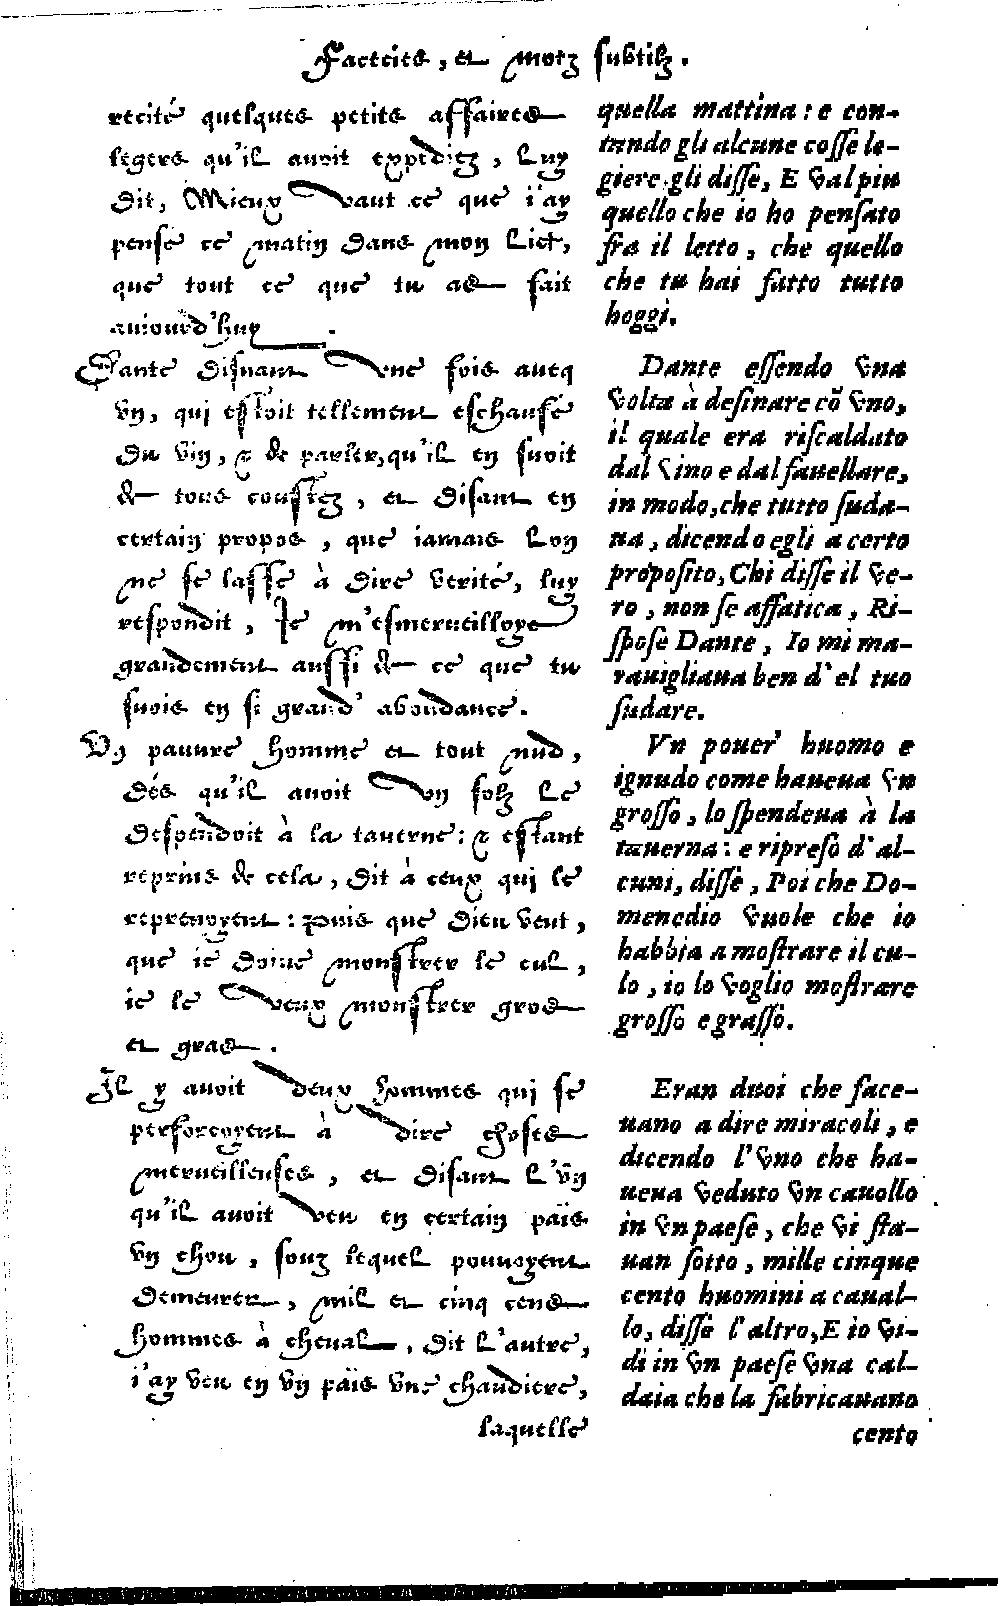 Faceties, et motz subtilz.
recité quelques petits affaires
legers qu'il auoit expediez, Luy
dit, Mieux vaut ce que i'ay
pensé ce matin dans mon lict,
que tout ce que tu as fait
auiourd'huy.
Dante disnant vne fois auecq
vn, qui estoit tellement eschaufé
du vin, & de parler, qu'il en suoit
de tous coustez, et disant en
certain propos, que iamais Lon
ne se lasse à dire verité, luy
respondit, Ie m'esmerueilloye
grandement aussi de ce que tu
suois en si grand' abondance.
Vn pauure homme et tout nud,
dés qu'il auoit vn solz le
despendoit à la tauerne: & estant
reprins de cela, dit à ceux qui le
reprenoyent: puis que Dieu veut,
que ie doiue monstrer le cul,
ie le veux monstrer gros
et gras.
Il y auoit deux hommes qui se
perforcoyent à dire choses
merueilleuses, et disant l'vn
qu'il auoit veu en certain païs
vn chou, souz lequel pouuoyent
demeurer, mil et cinq cens
hommes à cheual, dit l'autre,
i'ay veu en vn païs vne chaudiere,
laquelle
quella mattina: e con-
tando gli alcune cosse le-
giere gli disse, E val piu
quello che io ho pensato
fra il letto, che quello
che tu hai fatto tutto
hoggi.
Dante essendo vna
volta à desinare cõ vno,
il quale era riscaldato
dal vino e dal fauellare,
in modo, che tutto suda-
ua, dicendo egli a certo
proposito, Chi disse il ve-
ro, non se affatica, Ri-
spose Dante, Io mi ma-
rauigliaua ben d'el tuo
sudare.
Vn pouer' huomo e
ignudo come haueua vn
grosso, lo spendeua à la
tauerna: e ripreso d'al-
cuni, disse, Poi che Do-
menedio vuole che io
habbia a mostrare il cu-
lo, io lo voglio mostrare
grosso e grasso.
Eran duoi che face-
uano a dire miracoli, e
dicendo l'vno che ha-
ueua veduto vn cauollo
in vn paese, che vi sta-
uan sotto, mille cinque
cento huomini a caual-
lo, disse l'altro, E io vi-
di in vn paese vna cal-
daia che la fabricauano
cento